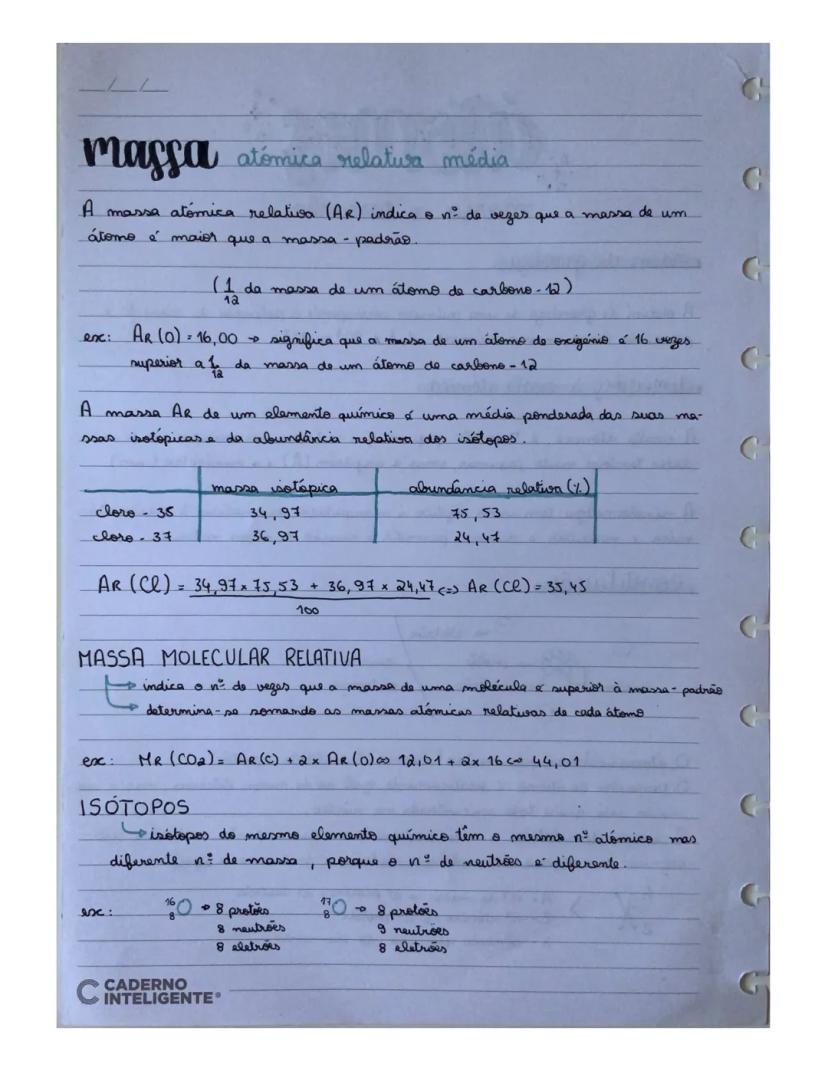 __/__/__
massa atómica relativa média
A massa atómica relativa (AR) indica o nº de vezes que a massa de um
átomo é maior que a massa-padrão.
(1/12 da massa de um átomo de carbono-12)
ex: AR (O) = 16,00 → significa que a massa de um átomo de oxigénio é 16 vezes
superior a 1/12 da massa de um átomo de carbono-12
A massa AR de um elemento químico é uma média ponderada das suas ma-
ssas isotópicas e da abundância relativa dos isótopos.
massa isotópica abundância relativa (%)
cloro - 35 34,97 75,53
cloro - 37 36,97 24,47
AR (Cl) = 34,97 × 75,53 + 36,97 × 24,47 / 100 <=> AR (Cl) = 35,45
MASSA MOLECULAR RELATIVA
↳ indica o nº de vezes que a massa de uma molécula é superior à massa-padrão
↳ determina-se somando as massas atómicas relativas de cada átomo
ex: MR (CO2) = AR (C) + 2 × AR (O) <=> 12,01 + 2 × 16 <=> 44,01
ISÓTOPOS
↳ isótopos do mesmo elemento químico têm o mesmo nº atómico mas
diferente nº de massa, porque o nº de neutrões é diferente.
ex: ¹⁶₈O → 8 protões ¹⁷₈O → 8 protões
8 neutrões 9 neutrões
8 eletrões 8 eletrões
CADERNO
INTELIGENTE®